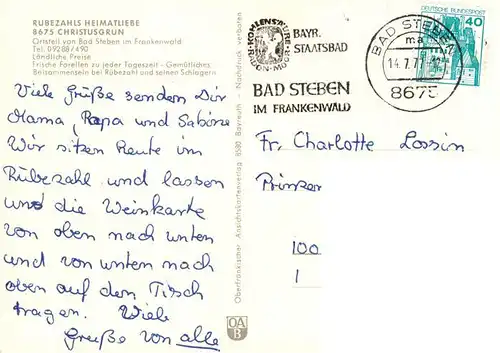 RÜBEZAHLS HEIMATLIEBE
8675 CHRISTUSGRÜN
Ortsteil von Bad Steben im Frankenwald
Tel. 09288/490
Ländliche Preise
Frische Forellen zu jeder Tageszeit - Gemütliches
Beisammensein bei Rübezahl und seinen Schlagern
Viele Grüße senden Dir
Mama, Papa und Sabine
Wir sitzen heute im
Rübezahl und lassen
uns die Weinkarte
von oben nach unten
und von unten nach
oben auf den Tisch
tragen. Viele
Grüße von alle
Oberfränkischer Ansichtskartenverlag 8580 Bayreuth - Nachdruck verboten
OA
B
KOHLENSÄURE
RADON-MOOR
BAYR.
STAATSBAD
BAD STEBEN
IM FRANKENWALD
BAD STEBEN
ma
14.7.77
8675
DEUTSCHE BUNDESPOST
40
Fr. Charlotte Lossin
100
1